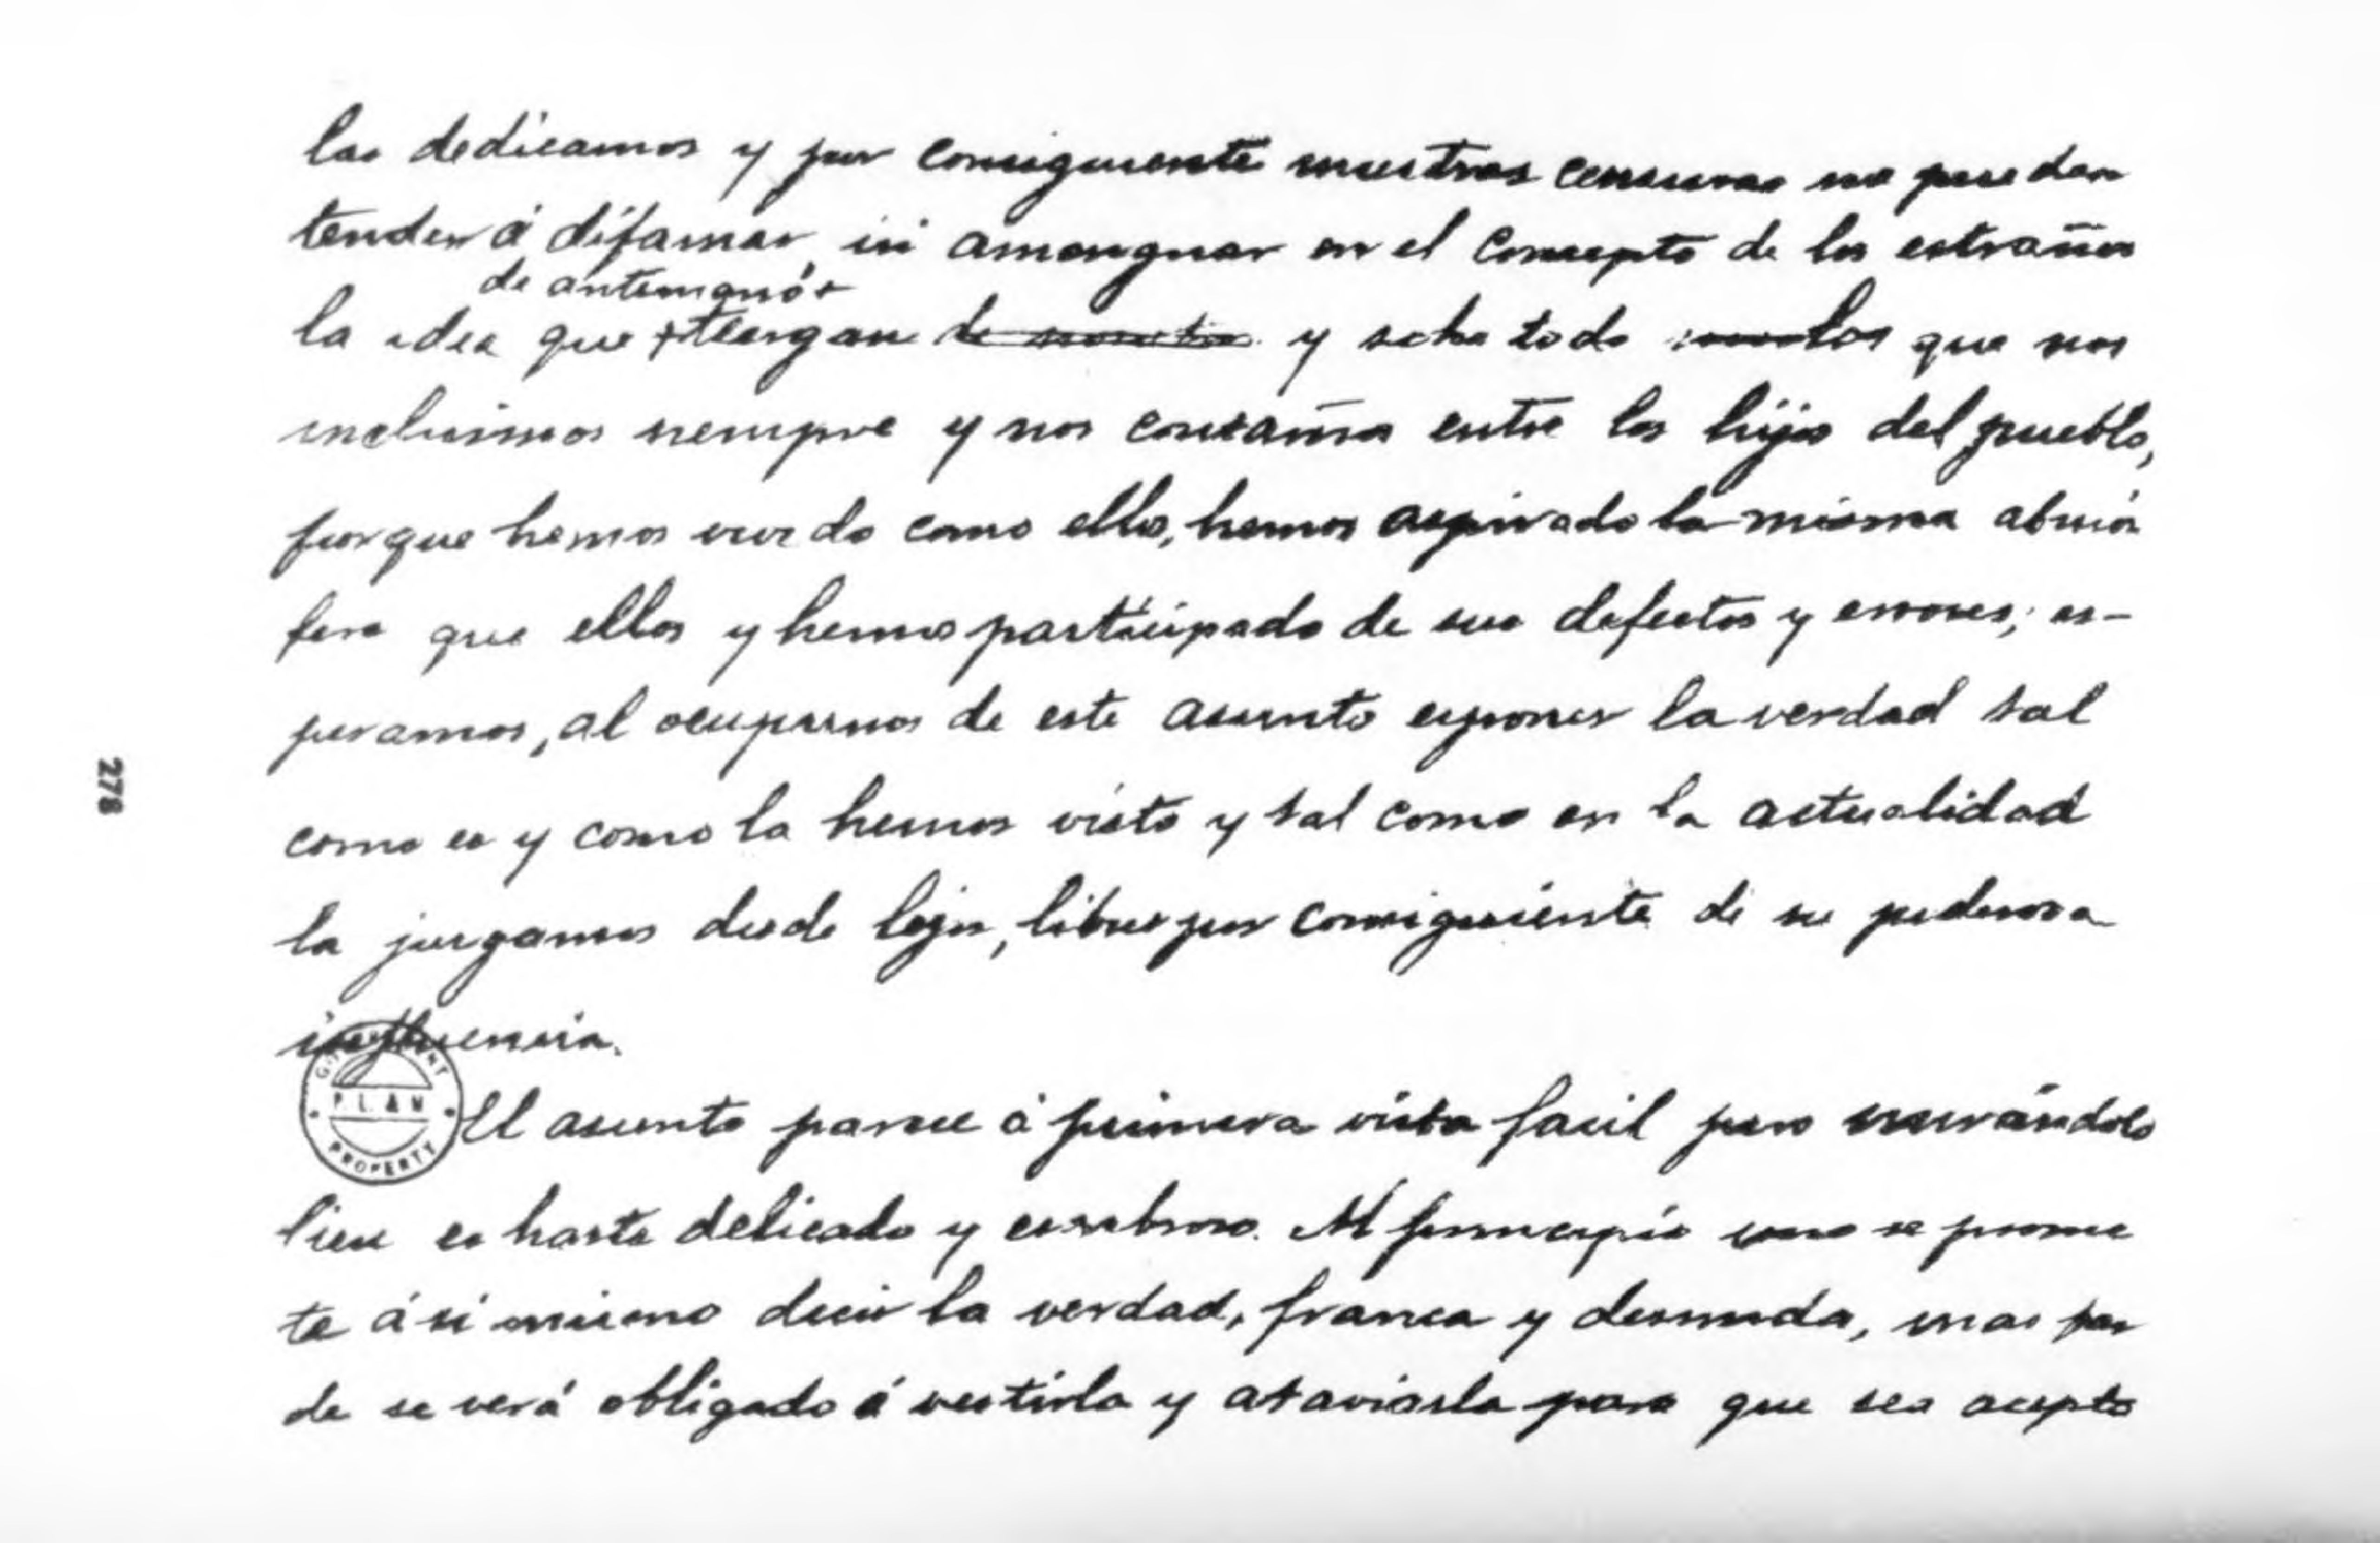 las dedicamos y por consiguiente nuestras censuras no pueden
tender á difamar, ni amenguar en el concepto de los estraños
de antemano
la idea que tengan y sobre todo que nos
incluimos siempre y nos entre los hijos del pueblo,
porque hemos vivido como ellos, hemos aspirado la misma atmós
fera que ellos y hemos participado de sus defectos y errores; es-
peramos, al ocuparnos de este asunto esponer la verdad tal
como es y como la hemos visto y tal como en la actualidad
la juzgamos desde lejos, libres por consiguiente de su poderosa
influencia.
El asunto parece á primera vista facil pero mirándolo
bien es harto delicado y escabroso. Al principio uno se prome
te á si mismo decir la verdad, franca y desnuda, mas tar
de se verá obligado á vestirla y ataviarla para que sea acepta
278
GOVERNMENT
PROPERTY